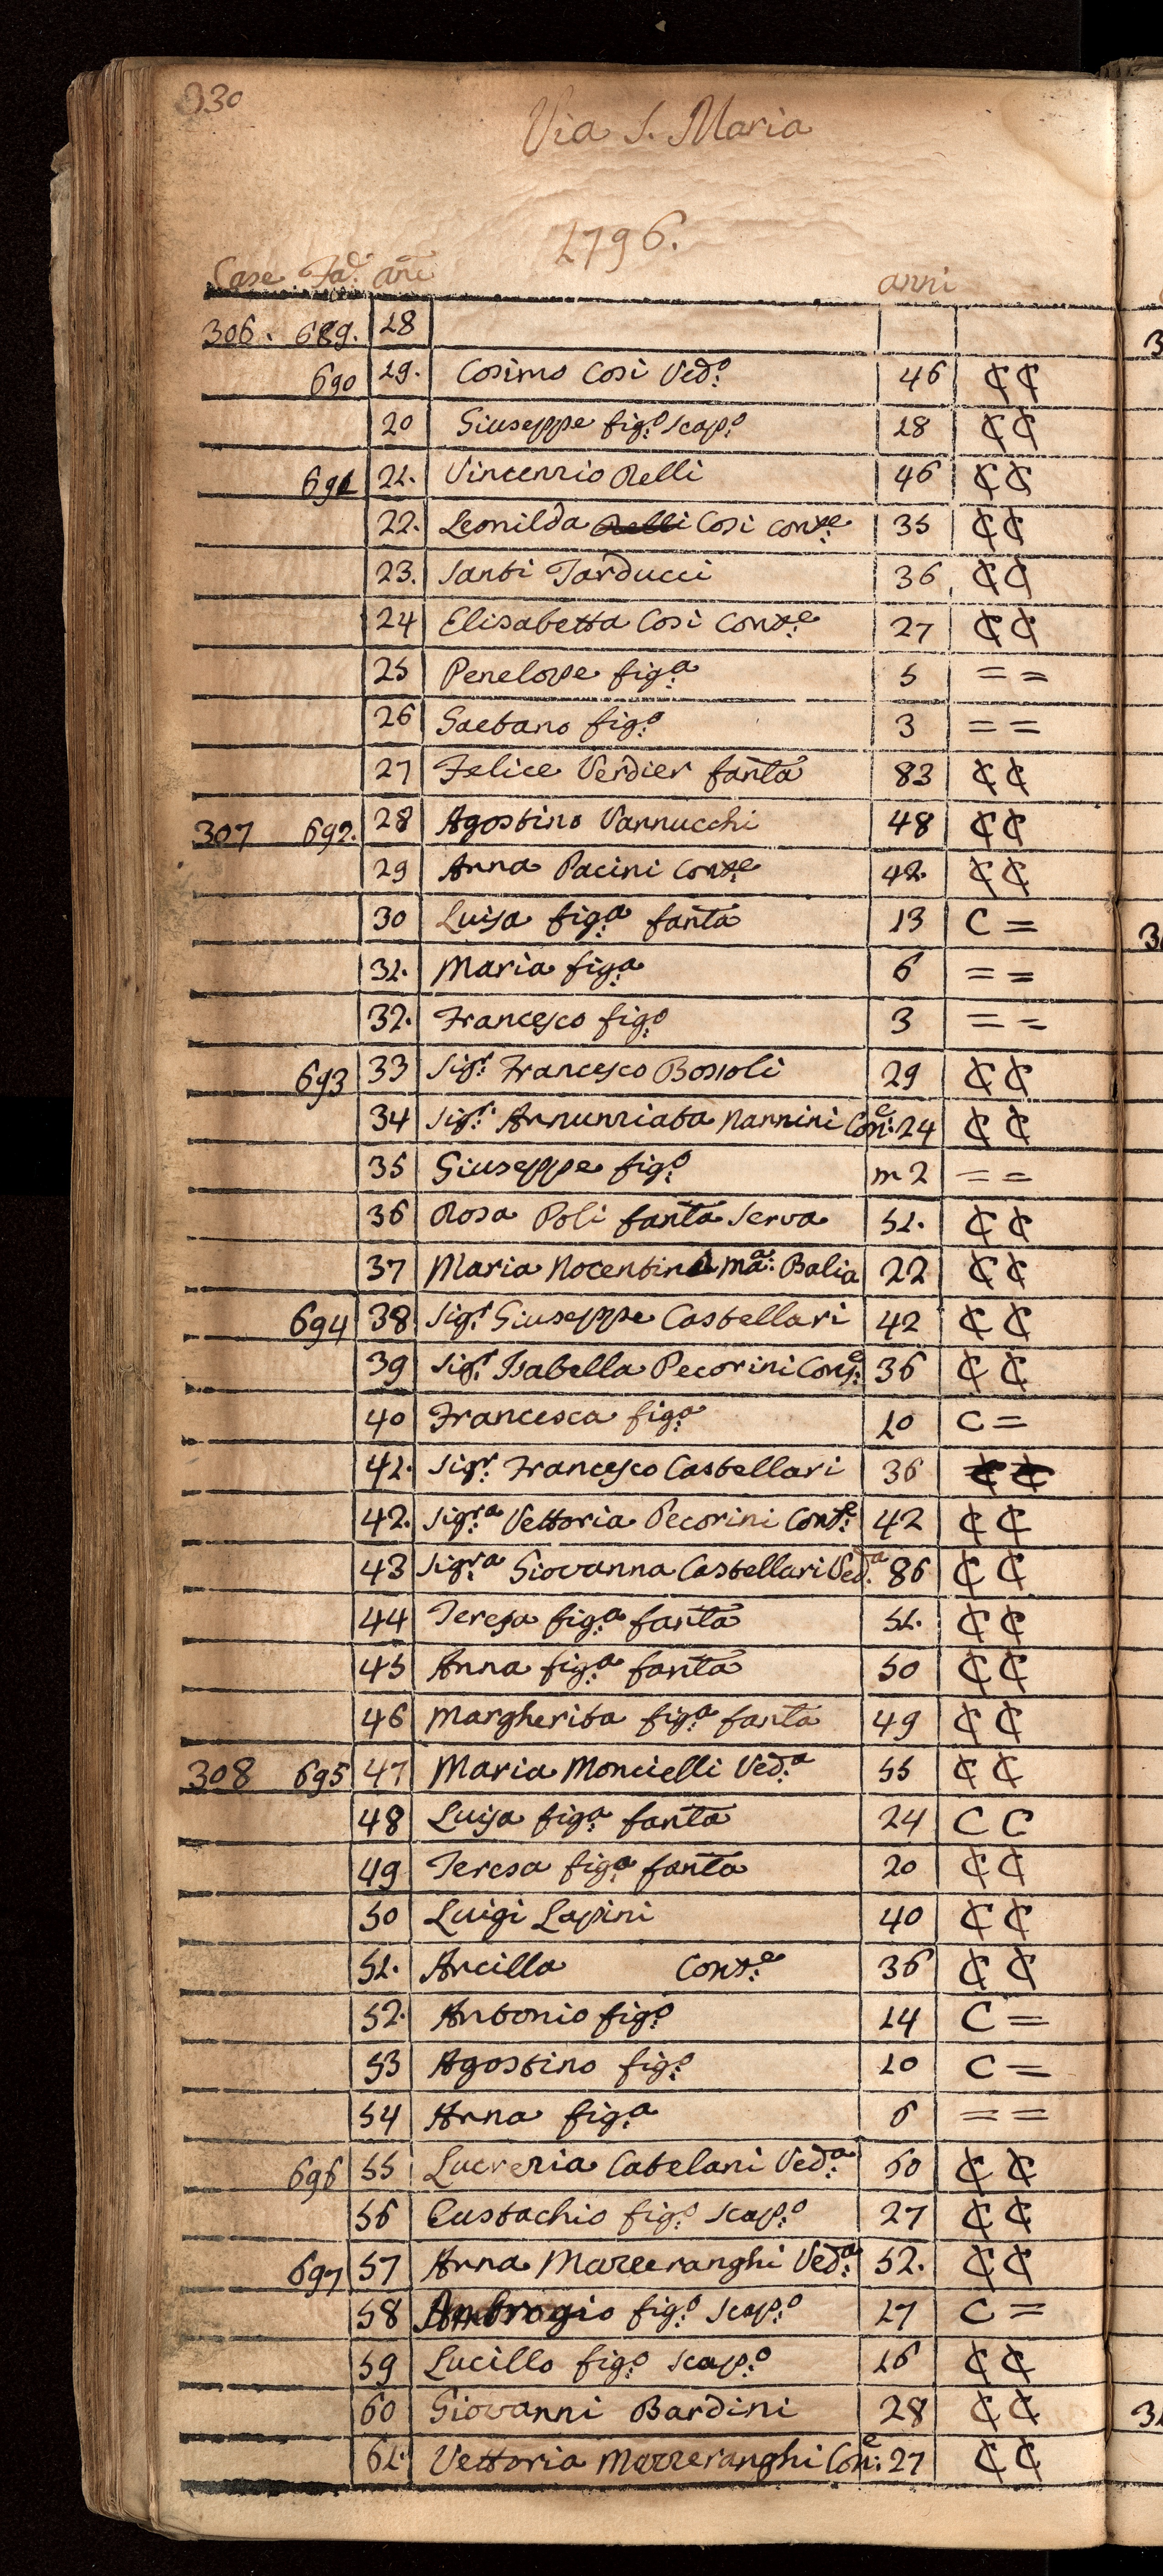 330
Via S. Maria
1796.
Case Fa.e ani anni
306. 689. 18
690 19. Cosimo Cosi Ved.o 46 ₵ ₵
20 Giuseppe fig.o scap.o 18 ₵ ₵
691 21. Vincenzio Relli 46 ₵ ₵
22. Leonilda Relli Cosi Cons.e 35 ₵ ₵
23. Santi Tarducci 36 ₵ ₵
24 Elisabetta Cosi Cons.e 27 ₵ ₵
25 Penelope fig.a 5 = =
26 Gaetano fig.o 3 = =
27 Felice Verdier fanta 83 ₵ ₵
307 692. 28 Agostino Vannucchi 48 ₵ ₵
29 Anna Pacini Cons.e 42. ₵ ₵
30 Luisa fig.a fanta 13 C =
31. Maria fig.a 6 = =
32. Francesco fig.o 3 = =
693 33 Sig.r Francesco Bossoli 29 ₵ ₵
34 Sig.r Annunziata Nannini Con.e 24 ₵ ₵
35 Giuseppe fig.o m 2 = =
36 Rosa Poli fanta Serva 51. ₵ ₵
37 Maria Nocentina Ma.a Balia 22 ₵ ₵
694 38 Sig.r Giuseppe Castellari 42 ₵ ₵
39 Sig.r Isabella Pecorini Cons.e 36 ₵ ₵
40 Francesca fig.a 10 C =
41. Sig.r Francesco Castellari 36 ₵ ₵
42. Sig.ra Vettoria Pecorini Cons.e 42 ₵ ₵
43 Sig.ra Giovanna Castellari Ved.a 86 ₵ ₵
44 Teresa fig.a fanta 51. ₵ ₵
45 Anna fig.a fanta 50 ₵ ₵
46 Margherita fig.a fanta 49 ₵ ₵
308 695 47 Maria Moncielli Ved.a 55 ₵ ₵
48 Luisa fig.a fanta 24 C C
49 Teresa fig.a fanta 20 ₵ ₵
50 Luigi Lapini 40 ₵ ₵
51. Ancilla Cons.e 36 ₵ ₵
52. Antonio fig.o 14 C =
53 Agostino fig.o 10 C =
54 Anna fig.a 6 = =
696 55 Lucrezia Catelani Ved.a 60 ₵ ₵
56 Eustachio fig.o scap.o 27 ₵ ₵
697 57 Anna Mazzeranghi Ved.a 52. ₵ ₵
58 Ambrogio fig.o scap.o 17 C =
59 Lucillo fig.o scap.o 16 ₵ ₵
60 Giovanni Bardini 28 ₵ ₵
61. Vettoria Mazzeranghi Con.e 27 ₵ ₵